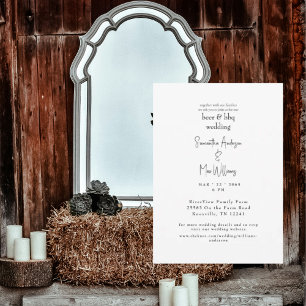 together with our families
beer & bbq
wedding
Samantha Anderson
&
Max Williams
MAR * 22 * 2068
6 pm
RiverView Family Farm
29563 On the Farm Road
Knoxville, TN 12231
for more wedding details and to rsvp
visit our wedding website.